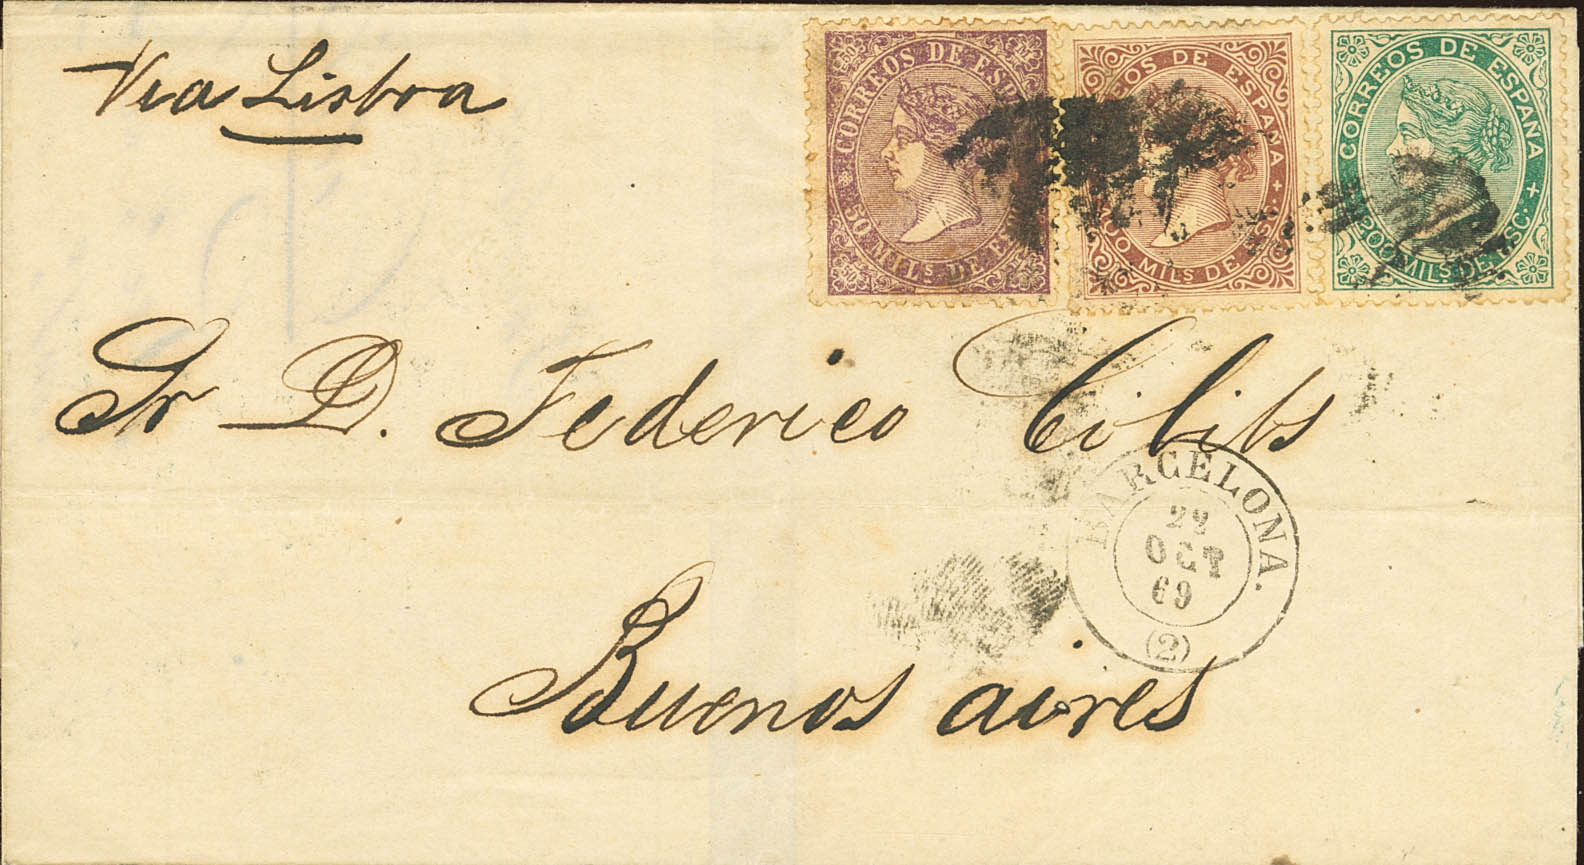 Via Lisboa
CORREOS DE ESPA
50 MILS DE E
OS DE ESPAÑA
MILS DE ES
CORREOS DE ESPAÑA
200 MILS DE ESC.
Sr D. Federico Cibils
BARCELONA.
22
OCT
69
(2)
Buenos aires